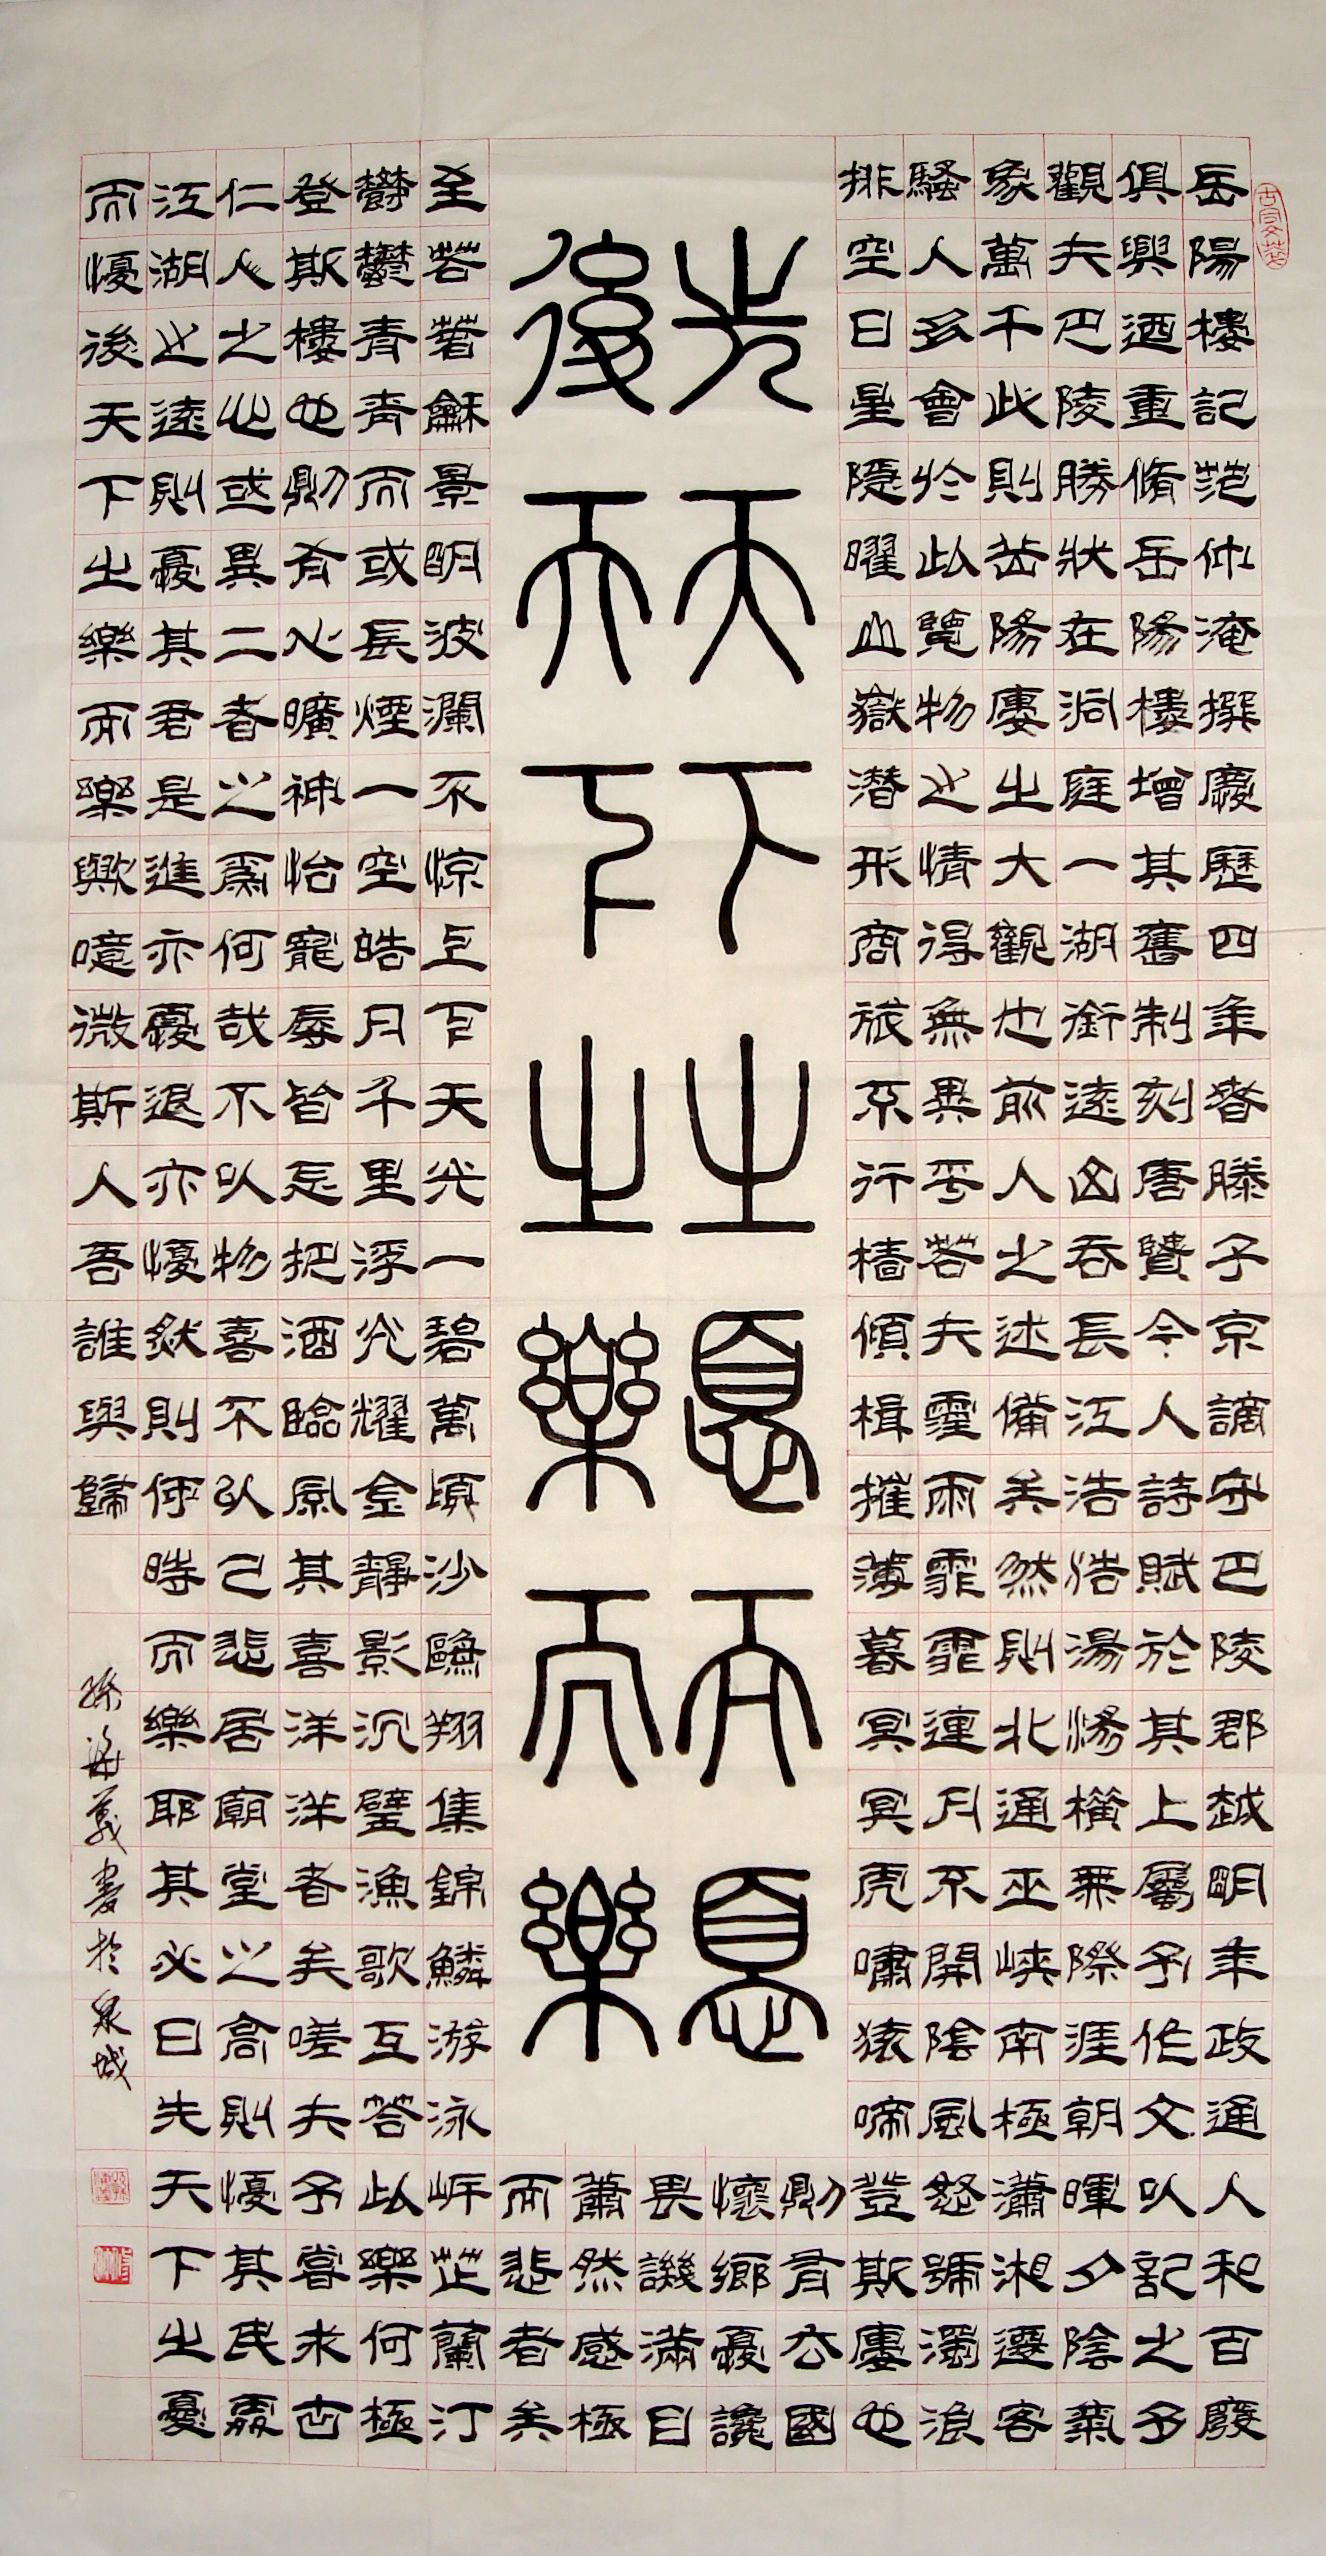 岳陽樓記范仲淹撰慶歷四年春滕子京謫守巴陵郡越明年政通人和百廢
俱興迺重脩岳陽樓增其舊制刻唐賢今人詩賦於其上屬予作文以記之予
觀夫巴陵勝狀在洞庭一湖銜遠山吞長江浩浩湯湯橫無際涯朝暉夕陰氣
象萬千此則岳陽樓之大觀也前人之述備矣然則北通巫峽南極瀟湘遷客
騷人多會於此覽物之情得無異乎若夫霪雨霏霏連月不開陰風怒號濁浪
排空日星隱曜山嶽潛形商旅不行檣傾楫摧薄暮冥冥虎嘯猿啼登斯樓也
先天下之憂而憂
後天下之樂而樂
則有去國
懷鄉憂讒
畏譏滿目
蕭然感極
而悲者矣
至若春和景明波瀾不驚上下天光一碧萬頃沙鷗翔集錦鱗游泳岸芷蘭汀
鬱鬱青青而或長煙一空皓月千里浮光耀金靜影沉璧漁歌互答此樂何極
登斯樓也則有心曠神怡寵辱皆忘把酒臨風其喜洋洋者矣嗟夫予嘗求古
仁人之心或異二者之為何哉不以物喜不以己悲居廟堂之高則憂其民處
江湖之遠則憂其君是進亦憂退亦憂然則何時而樂耶其必曰先天下之憂
而憂後天下之樂而樂歟噫微斯人吾誰與歸
孫海義書於泉城